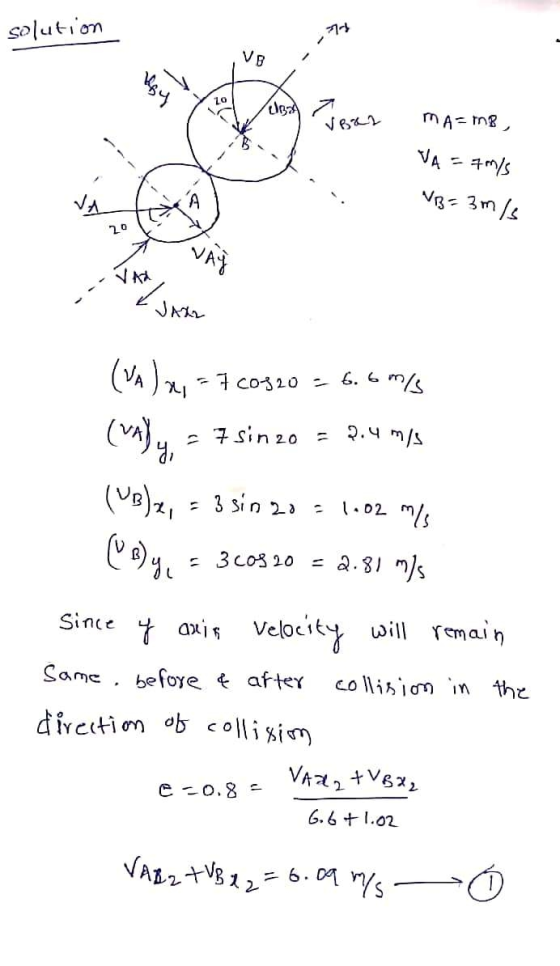 solution
V_B
V_By
20
V_Bx
V_Bx2
B
m_A = m_B,
V_A = 7 m/s
V_B = 3 m/s
V_A
A
20
V_Ay
V_Ax
V_Ax2
(V_A)x₁ = 7 cos20 = 6.6 m/s
(V_A)y₁ = 7 sin 20 = 2.4 m/s
(V_B)x₁ = 3 sin 20 = 1.02 m/s
(V_B)y₁ = 3 cos 20 = 2.81 m/s
Since y axis velocity will remain
Same . before & after collision in the
direction of collision
e = 0.8 = (V_Ax₂ + V_Bx₂) / (6.6 + 1.02)
V_Ax₂ + V_Bx₂ = 6.09 m/s → ①